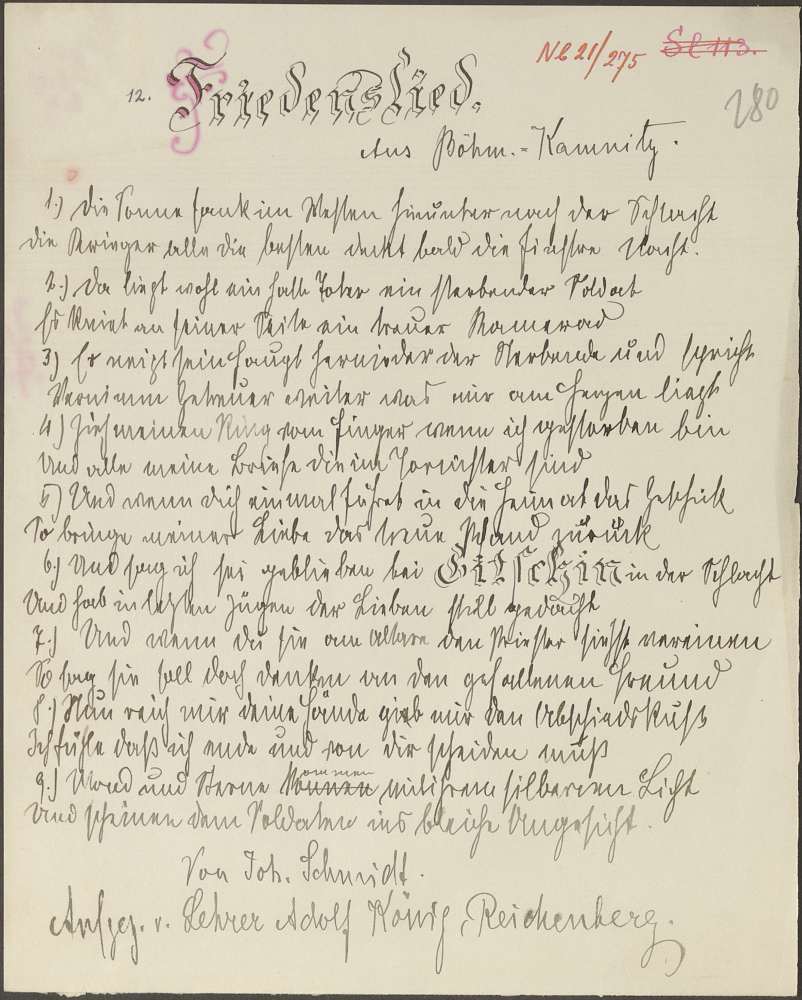 Nl 21/275 Sl 113.
280
12. Friedenslied.
Aus Böhm.-Kamnitz.
1.) Die Sonne sank im Westen hinunter nach der Schlacht
die Krieger alle die besten deckt bald die finstre Nacht.
2.) Da liegt wohl ein halb Toter ein sterbender Soldat
Es kniet an seiner Seite ein treuer Kamerad
3) Er neigt sein Haupt hernieder der Sterbende und spricht
Vernimm Getreuer weiter was mir am Herzen liegt
4) Zieh meinen Ring vom Finger wenn ich gestorben bin
Und alle meine Briefe die im Tornister sind
5) Und wenn dich einmal führet in die Heimat das Geschick
So bringe meiner Liebe das treue Pfand zurück
6.) Und sag ich sei geblieben bei Gitschin in der Schlacht
Und hab in letzten Zügen der Lieben still gedacht
7.) Und wenn du sie am Altare den Priester siehst vereinen
So sag sie soll doch denken an den gefallenen Freund
8.) Nun reich mir deine Hände gieb mir den Abschiedskuß
Ich fühle daß ich ende und von dir scheiden muß
9.) Mond und Sterne kommen mit ihrem silbernen Licht
Und scheinen dem Soldaten ins bleiche Angesicht.
Von Joh. Schmidt.
Aufgez. v. Lehrer Adolf König, Reichenberg.